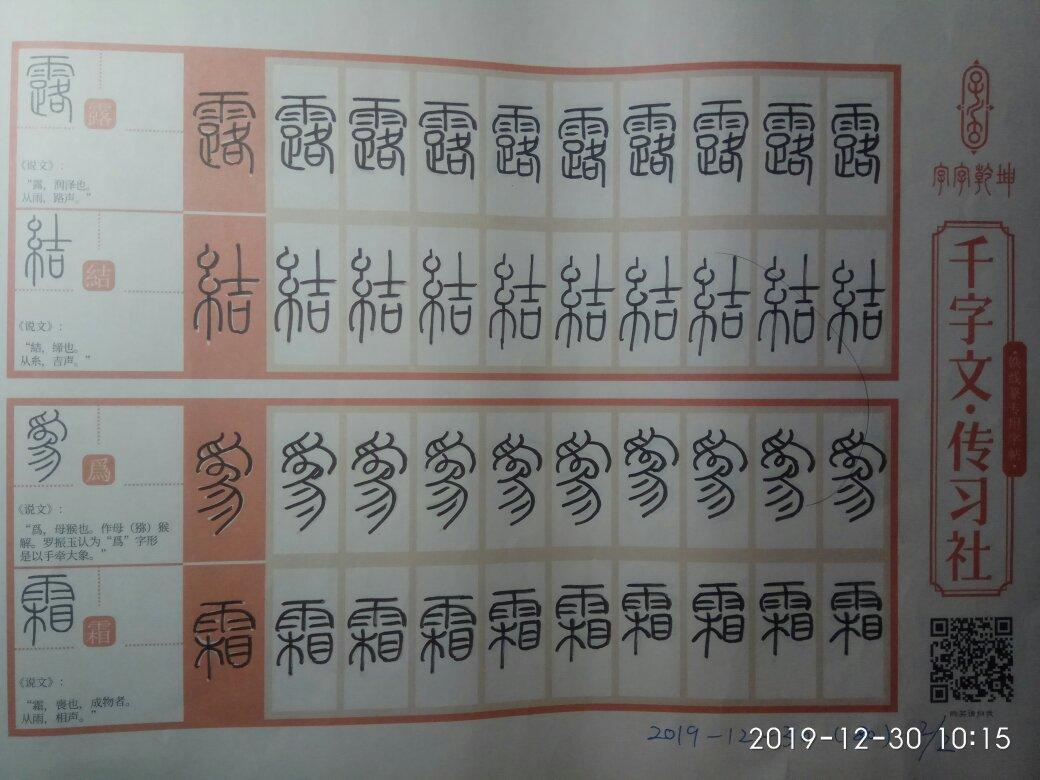 露 露 露 露 露 露 露 露 露 露 露 露
《说文》：
“露，润泽也。
从雨，路声。”
結 結 結 結 結 結 結 結 結 結 結 結
《说文》：
“結，缔也。
从糸，吉声。”
爲 爲 爲 爲 爲 爲 爲 爲 爲 爲 爲 爲
《说文》：
“爲，母猴也。作母（猕）猴
解。罗振玉认为“爲”字形
是以手牵大象。”
霜 霜 霜 霜 霜 霜 霜 霜 霜 霜 霜 霜
《说文》：
“霜，喪也，成物者。
从雨，相声。”
字字乾坤
千字文·传习社
·铁线篆专用字帖·
2019-12-30 10:15